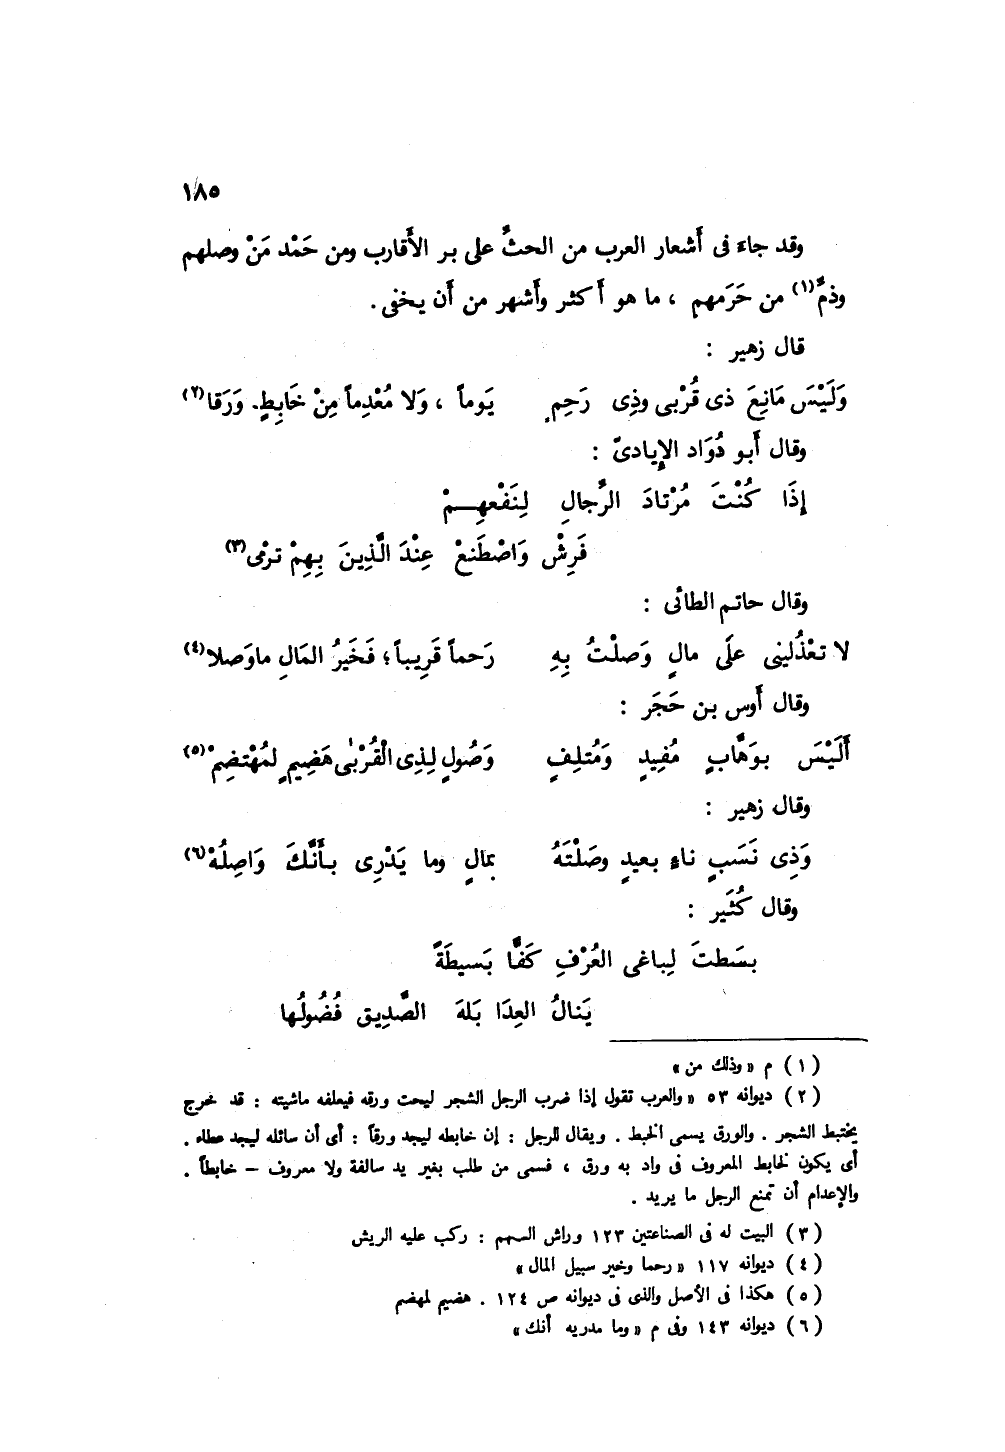 ١٨٥
وقد جاء فى أَشعار العرب من الحثِّ على بر الأَقارب ومن حَمْد مَنْ وصلهم
وذمِّ(١) من حَرَمهم ، ما هو أَكثر وأَشهر من أَن يخفى .
قال زهير :
وَلَيْسَ مَانِعَ ذى قُرْبى وذِى رَحِمٍ يَوماً ، وَلا مُعْدِماً مِنْ خَابِطٍ. وَرَقا(٢)
وقال أَبو دُوَاد الإِيادىّ :
إِذَا كُنْتَ مُرْتادَ الرِّجالِ لِنَفْعهِمْ
فَرِشْ وَاصْطَنعْ عِنْدَ الَّذِينَ بِهِمْ ترْمى(٣)
وقال حاتم الطائى :
لا تعْذُلينى علَى مالٍ وَصلْتُ بِهِ رَحماً قَرِيباً ؛ فَخَيرُ المَالِ ماوَصلا(٤)
وقال أَوس بن حَجَر :
أَلَيْسَ بوَهَّابٍ مُفِيدٍ وَمُتلِفٍ وَصُولٍ لِذِى الْقُرْبٰى هَضِيمٍ لمُهْتضِمْ(٥)
وقال زهير :
وَذِى نَسَبٍ ناءٍ بعيدٍ وصَلْتَهُ بمالٍ وما يَدْرِى بأَنَّكَ وَاصِلُهْ(٦)
وقال كُثَير :
بسَطتَ لِباغى العُرْفِ كَفًّا بَسيطَةً
يَنالُ العِدَا بَلهَ الصَّدِيق فُضُولُها
(١) م « وذلك من »
(٢) ديوانه ٥٣ « والعرب تقول إذا ضرب الرجل الشجر ليحت ورقه فيعلفه ماشيته : قد خرج
يختبط الشجر . والورق يسمى الخبط . ويقال للرجل : إن خابطه ليجد ورقاً : أى أن سائله ليجد عطاء .
أى يكون لخابط المعروف فى واد به ورق ، فسمى من طلب بغير يد سالفة ولا معروف – خابطاً .
والإعدام أن تمنع الرجل ما يريد .
(٣) البيت له فى الصناعتين ١٢٣ وراش السهم : ركب عليه الريش
(٤) ديوانه ١١٧ « رحما وخير سبيل المال »
(٥) هكذا فى الأصل والذى فى ديوانه ص ١٢٤ . هضيم لمهضم
(٦) ديوانه ١٤٣ وفى م « وما مدريه أنك »